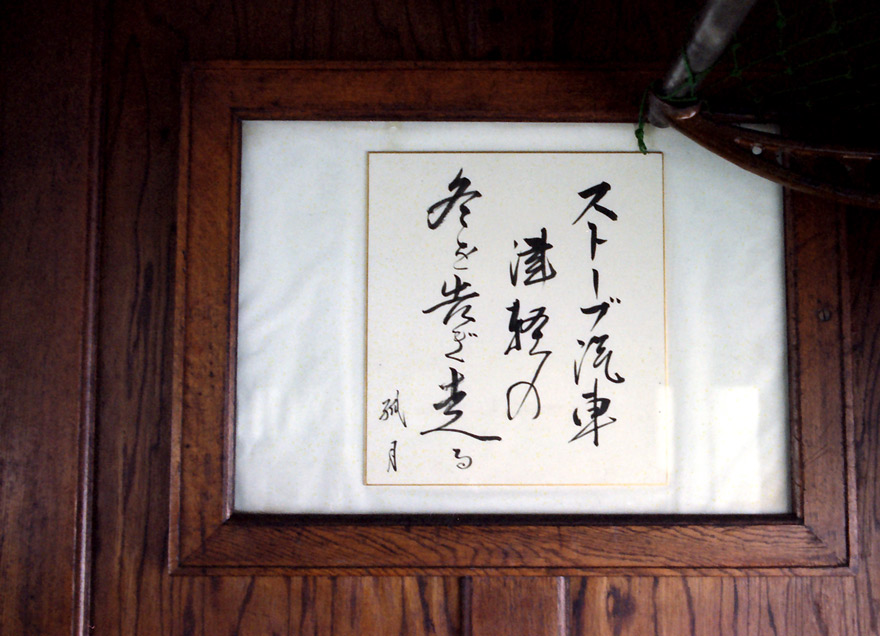 ストーブ汽車
津軽の
冬を告げ走る
孤月